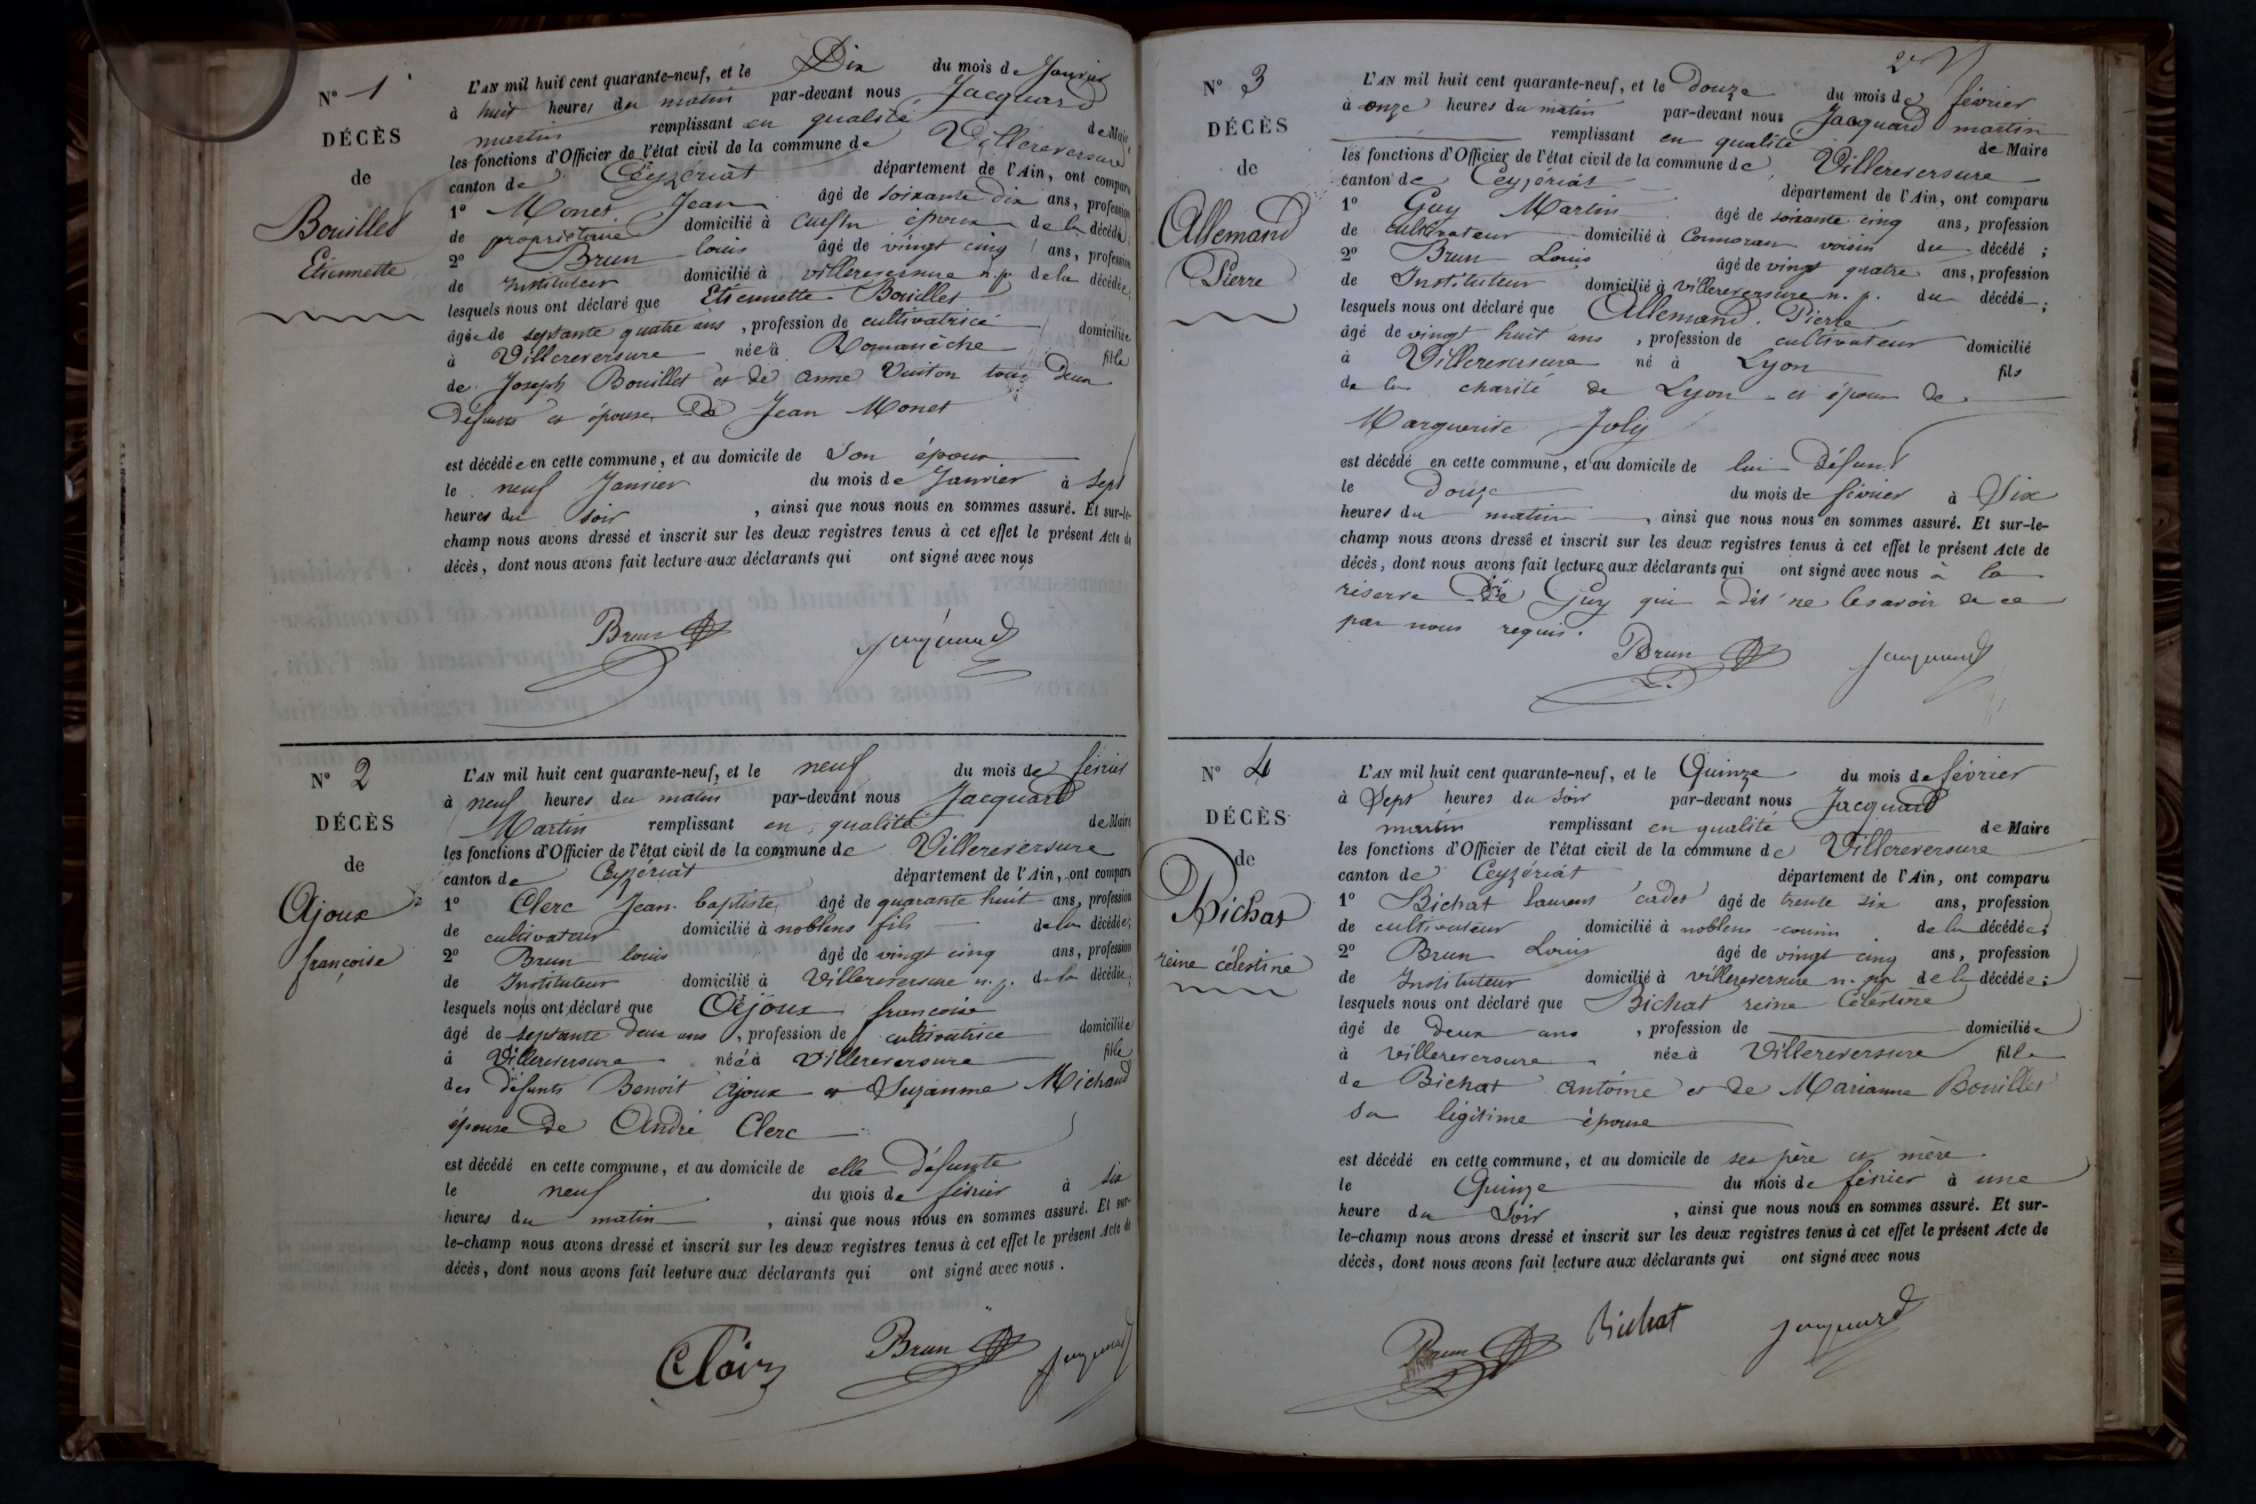 N° 1
DÉCÈS
de
Bouillet
Etiennette
L'AN mil huit cent quarante-neuf, et le Dix du mois de Janvier
à huit heures du matin par-devant nous Jacquard
martin remplissant en qualité de Maire
les fonctions d'Officier de l'état civil de la commune de Villereversure
canton de Ceyzériat département de l'Ain, ont comparu
1° Monet Jean âgé de soixante dix ans, profession
de propriétaire domicilié à époux de la décédée;
2° Brun louis âgé de vingt cinq ans, profession
de Instituteur domicilié à villereversure n. p. de la décédée;
lesquels nous ont déclaré que Etiennette Bouillet
âgée de septante quatre ans, profession de cultivatrice domiciliée
à Villereversure née à Romanèche fille
de Joseph Bouillet et de anne Vuiton tous deux
défunts et épouse de Jean Monet
est décédée en cette commune, et au domicile de Son époux
le neuf Janvier du mois de Janvier à Sept
heures du soir, ainsi que nous nous en sommes assuré. Et sur-le-
champ nous avons dressé et inscrit sur les deux registres tenus à cet effet le présent Acte de
décès, dont nous avons fait lecture aux déclarants qui ont signé avec nous
Brun Jacquard
N° 2
DÉCÈS
de
Ajoux
françoise
L'AN mil huit cent quarante-neuf, et le neuf du mois de février
à neuf heures du matin par-devant nous Jacquard
Martin remplissant en qualité de Maire
les fonctions d'Officier de l'état civil de la commune de Villereversure
canton de Ceyzériat département de l'Ain, ont comparu
1° Clerc Jean baptiste âgé de quarante huit ans, profession
de cultivateur domicilié à noblens fils de la décédée;
2° Brun louis âgé de vingt cinq ans, profession
de Instituteur domicilié à Villereversure n. p. de la décédée;
lesquels nous ont déclaré que Ajoux françoise
âgé de septante deux ans, profession de cultivatrice domiciliée
à Villereversure née à Villereversure fille
des défunts Benoit Ajoux et Suzanne Michaud
épouse de André Clerc
est décédé en cette commune, et au domicile de elle défunte
le neuf du mois de février à six
heures du matin, ainsi que nous nous en sommes assuré. Et sur-
le-champ nous avons dressé et inscrit sur les deux registres tenus à cet effet le présent Acte de
décès, dont nous avons fait lecture aux déclarants qui ont signé avec nous.
Clair Brun Jacquard
N° 3
DÉCÈS
de
Allemand
Pierre
L'AN mil huit cent quarante-neuf, et le Douze du mois de février
à onze heures du matin par-devant nous Jacquard martin
remplissant en qualité de Maire
les fonctions d'Officier de l'état civil de la commune de Villereversure
canton de Ceyzériat département de l'Ain, ont comparu
1° Guy Martin âgé de soixante cinq ans, profession
de cultivateur domicilié à Cormoran voisin du décédé;
2° Brun Louis âgé de vingt quatre ans, profession
de Instituteur domicilié à Villereversure n. p. du décédé;
lesquels nous ont déclaré que Allemand Pierre
âgé de vingt huit ans, profession de cultivateur domicilié
à Villereversure né à Lyon fils
de la charité de Lyon et époux de
Marguerite Joly
est décédé en cette commune, et au domicile de lui défunt
le douze du mois de février à Six
heures du matin, ainsi que nous nous en sommes assuré. Et sur-le-
champ nous avons dressé et inscrit sur les deux registres tenus à cet effet le présent Acte de
décès, dont nous avons fait lecture aux déclarants qui ont signé avec nous à la
réserve de Guy qui a dit ne le savoir de ce
par nous requis.
Brun Jacquard
N° 4
DÉCÈS
de
Bichat
reine célestine
L'AN mil huit cent quarante-neuf, et le Quinze du mois de février
à Sept heures du Soir par-devant nous Jacquard
martin remplissant en qualité de Maire
les fonctions d'Officier de l'état civil de la commune de Villereversure
canton de Ceyzériat département de l'Ain, ont comparu
1° Bichat laurent cadet âgé de trente six ans, profession
de cultivateur domicilié à noblens cousin de la décédée;
2° Brun Louis âgé de vingt cinq ans, profession
de Instituteur domicilié à villereversure n. p. de la décédée;
lesquels nous ont déclaré que Bichat reine Célestine
âgé de Deux ans, profession de domiciliée
à villereversure née à Villereversure fille
de Bichat antoine et de Marianne Bouillet
sa légitime épouse
est décédé en cette commune, et au domicile de ses père et mère
le Quinze du mois de février à une
heure du Soir, ainsi que nous nous en sommes assuré. Et sur-
le-champ nous avons dressé et inscrit sur les deux registres tenus à cet effet le présent Acte de
décès, dont nous avons fait lecture aux déclarants qui ont signé avec nous
Brun Bichat Jacquard